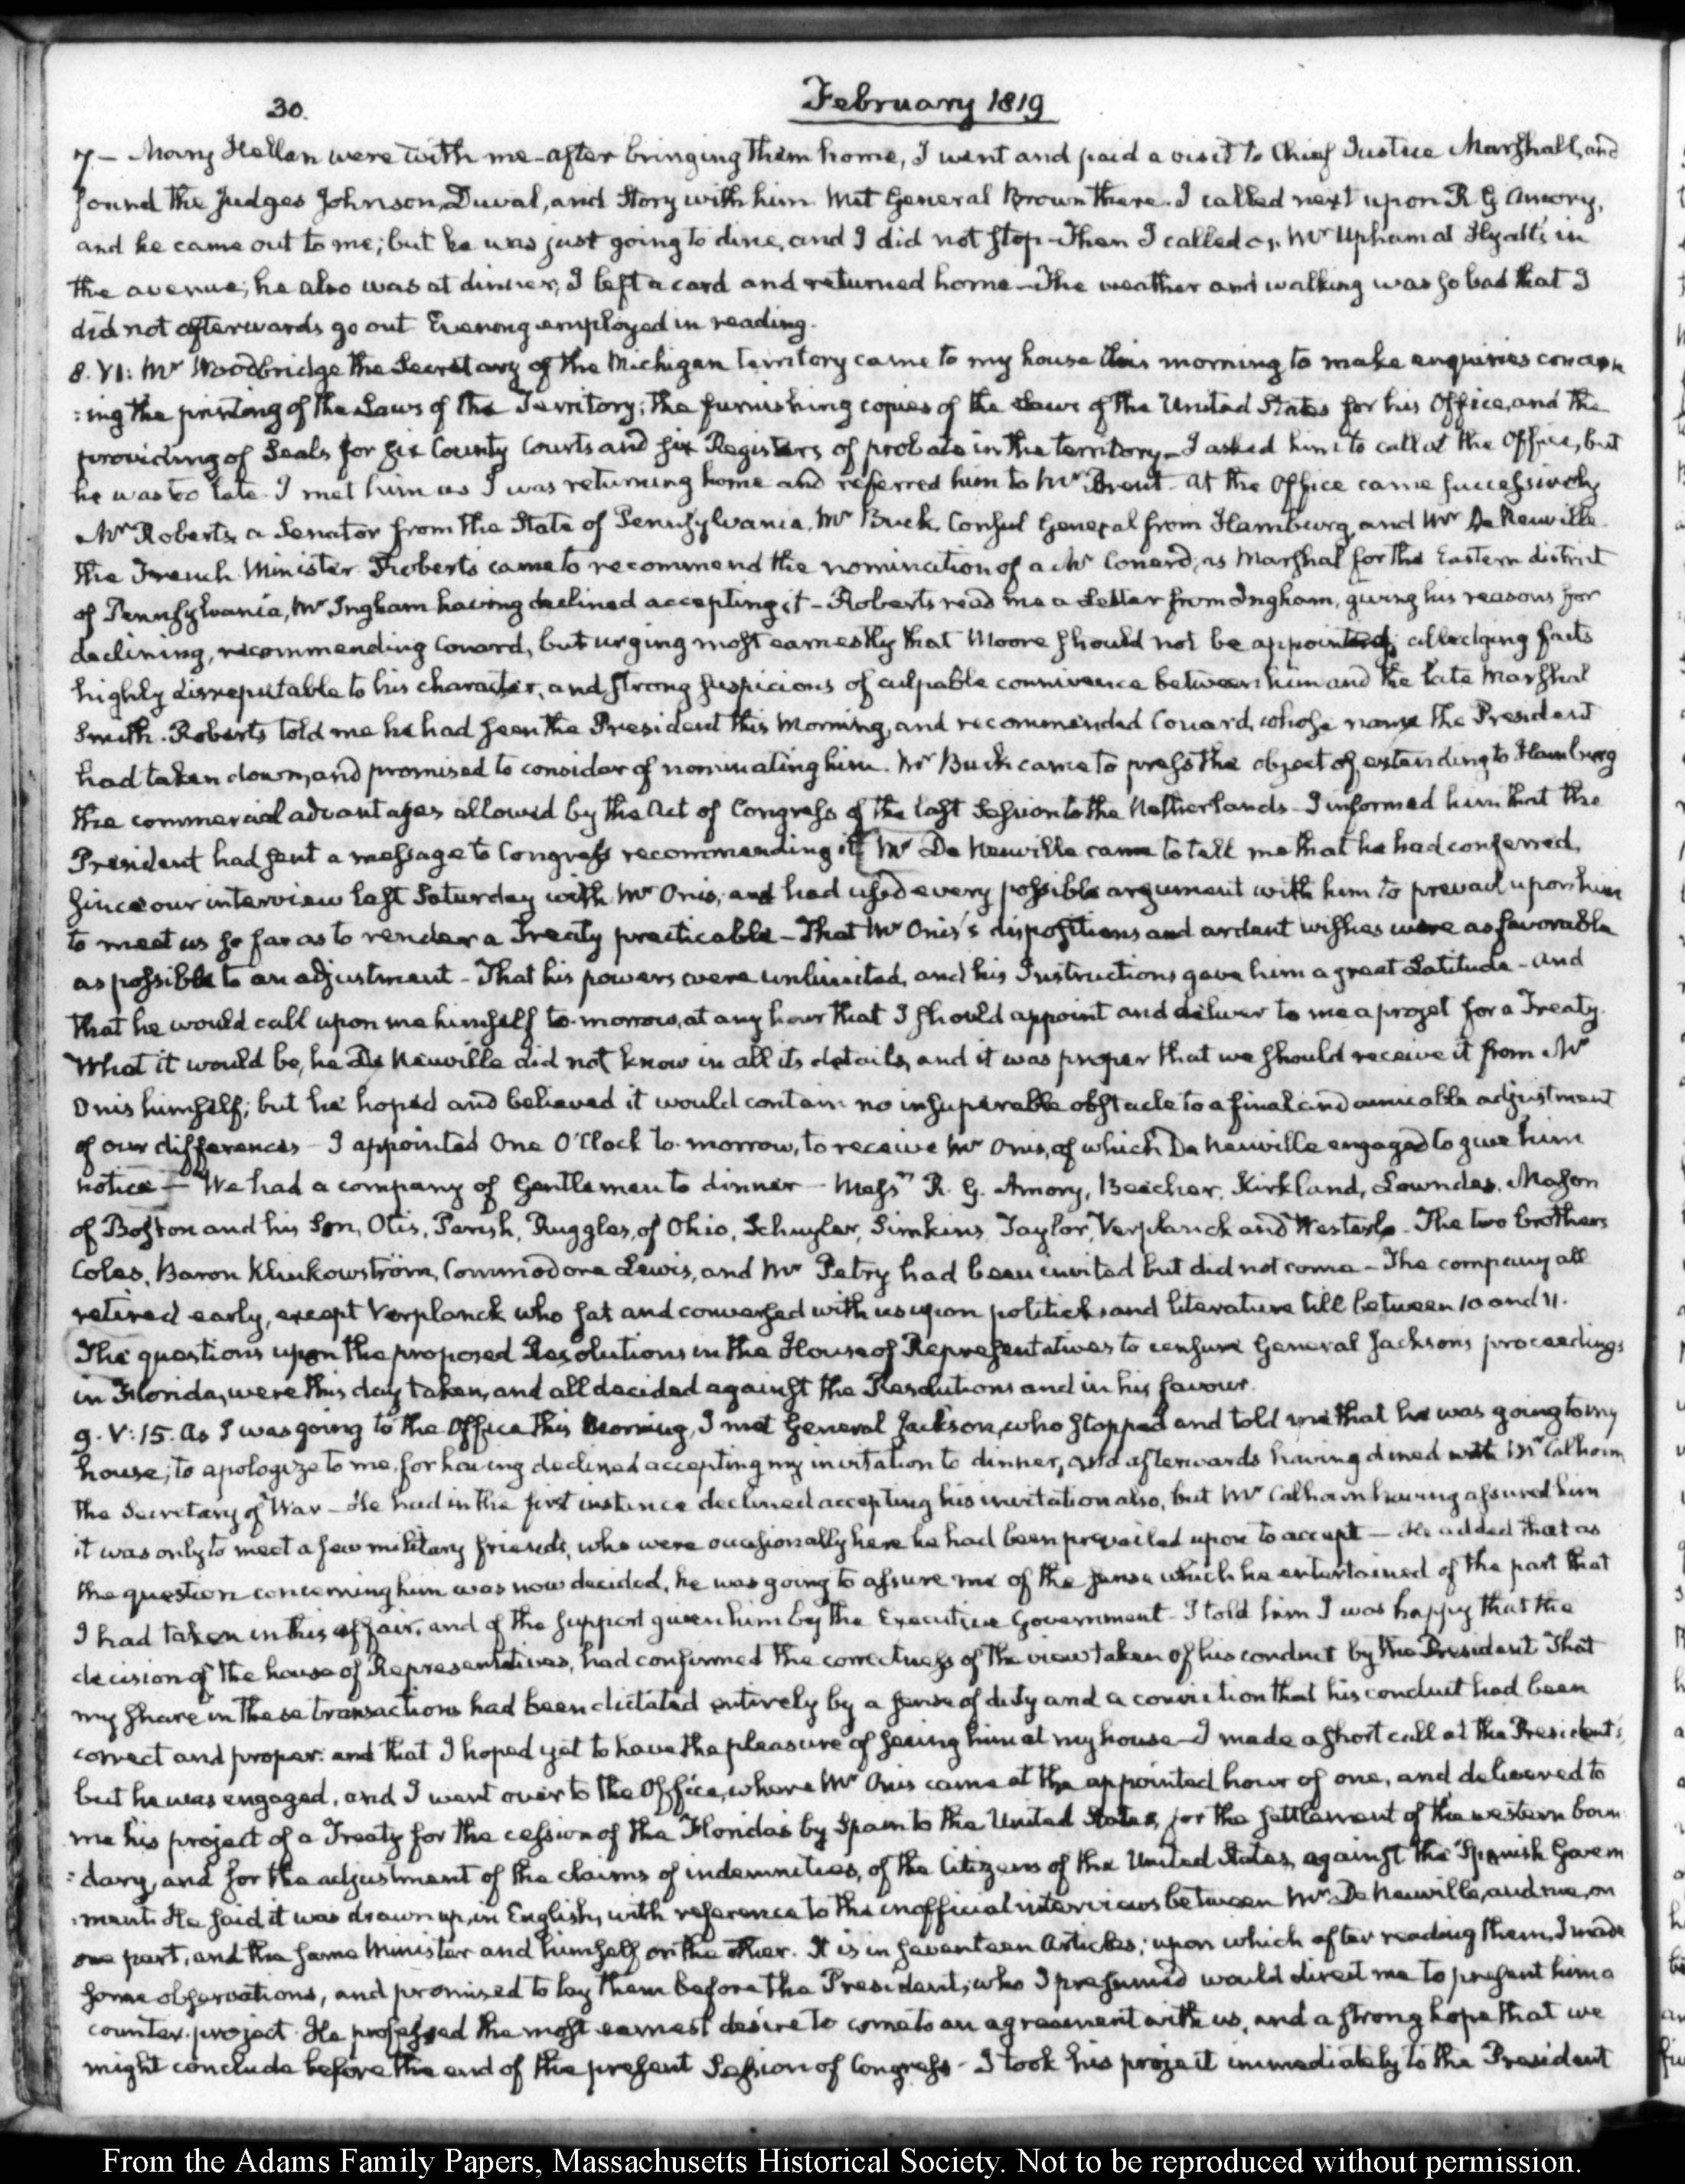 30.
February 1819
7 — Mary Hellen were with me — after bringing them home, I went and paid a visit to Chief Justice Marshall, and
found the Judges Johnson, Duval, and Story with him. Met General Brown there. I called next upon R. G. Amory,
and he came out to me; but he was just going to dine, and I did not stop — Then I called on Mr Upham at Hyatt's in
the avenue; he also was at dinner, I left a card and returned home — The weather and walking was so bad that I
did not afterwards go out. Evening employed in reading.
8. VI: Mr Woodbridge the Secretary of the Michigan territory came to my house this morning to make enquiries concern
:ing the printing of the Laws of the Territory; the furnishing copies of the Laws of the United States for his Office, and the
providing of Seals for six County Courts and six Registers of probate in the territory — I asked him to call at the Office, but
he was too late. I met him as I was returning home and referred him to Mr Brent. At the Office came successively
Mr Roberts, a Senator from the State of Pennsylvania, Mr Buck, Consul General from Hamburg, and Mr De Neuville
the French Minister. Roberts came to recommend the nomination of a Mr Conard, as Marshal for the Eastern district
of Pennsylvania, Mr Ingham having declined accepting it — Roberts read me a Letter from Ingham, giving his reasons for
declining, recommending Conard, but urging most earnestly that Moore should not be appointed; alledging facts
highly disreputable to his character, and strong suspicions of culpable connivance between him and the late Marshal
Smith. Roberts told me he had seen the President this Morning, and recommended Conard, whose name the President
had taken down, and promised to consider of nominating him. Mr Buck came to press the object of extending to Hamburg
the commercial advantages allowed by the Act of Congress of the last Session to the Netherlands — I informed him that the
President had sent a message to Congress recommending it. Mr De Neuville came to tell me that he had conferred,
since our interview last Saturday with Mr Onis, and had used every possible argument with him to prevail upon him
to meet us so far as to render a Treaty practicable — That Mr Onis's dispositions and ardent wishes were as favorable
as possible to an adjustment — That his powers were unlimited, and his Instructions gave him a great Latitude — and
that he would call upon me himself to-morrow, at any hour that I should appoint and deliver to me a projet for a Treaty.
What it would be, he De Neuville did not know in all its details, and it was proper that we should receive it from Mr
Onis himself; but he hoped and believed it would contain no insuperable obstacle to a final and amicable adjustment
of our differences — I appointed One O'Clock to-morrow, to receive Mr Onis, of which De Neuville engaged to give him
notice — We had a company of Gentlemen to dinner — Messrs R. G. Amory, Beecher, Kirkland, Lowndes, Mason
of Boston and his Son, Otis, Parish, Ruggles, of Ohio, Schuyler, Simkins, Taylor, Verplanck and Westerlo. The two brothers
Coles, Baron Klinkowström, Commodore Lewis, and Mr Petry had been invited but did not come — The company all
retired early, except Verplanck who sat and conversed with us upon politicks and literature till between 10 and 11.
The questions upon the proposed Resolutions in the House of Representatives to censure General Jacksons proceedings
in Florida, were this day taken, and all decided against the Resolutions and in his favour.
9. V:15. As I was going to the Office this Morning, I met General Jackson, who stopped and told me that he was going to my
house; to apologize to me, for having declined accepting my invitation to dinner, and afterwards having dined with Mr Calhoun
the Secretary of War — He had in the first instance declined accepting his invitation also, but Mr Calhoun having assured him
it was only to meet a few military friends, who were occasionally here he had been prevailed upon to accept — He added that as
the question concerning him was now decided, he was going to assure me of the sense which he entertained of the part that
I had taken in this affair, and of the support given him by the Executive Government — I told him I was happy that the
decision of the house of Representatives, had confirmed the correctness of the view taken of his conduct by the President. That
my share in these transactions had been dictated entirely by a sense of duty and a conviction that his conduct had been
correct and proper: and that I hoped yet to have the pleasure of seeing him at my house — I made a short call at the President's,
but he was engaged, and I went over to the Office, where Mr Onis came at the appointed hour of one, and delivered to
me his project of a Treaty for the cession of the Floridas by Spain to the United States, for the settlement of the western boun
:dary, and for the adjustment of the claims of indemnities, of the Citizens of the United States, against the Spanish Govern
:ment. He said it was drawn up, in English, with reference to the inofficial interviews between Mr De Neuville, and me, on
one part, and the same Minister and himself on the other. It is in seventeen Articles; upon which after reading them, I made
some observations, and promised to lay them before the President, who I presumed would direct me to present him a
counter-project. He professed the most earnest desire to come to an agreement with us, and a strong hope that we
might conclude before the end of the present Session of Congress — I took his project immediately to the President
From the Adams Family Papers, Massachusetts Historical Society. Not to be reproduced without permission.